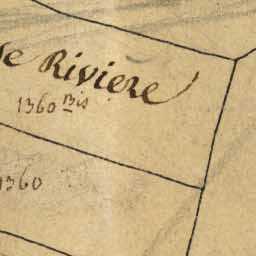 de Riviere
1360 Bis
1360